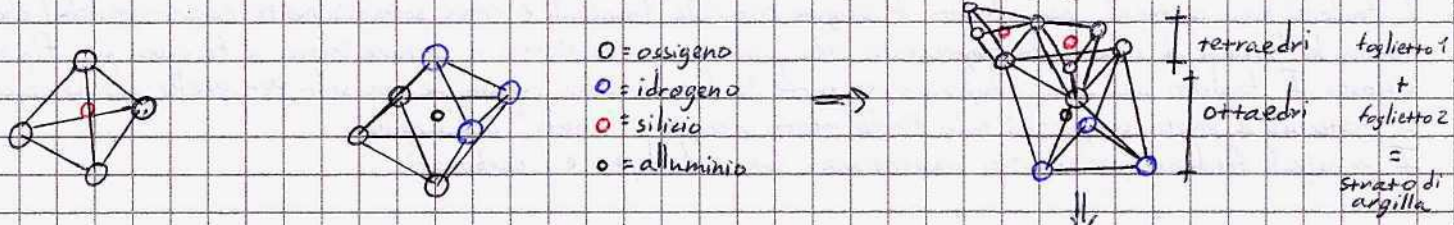 O = ossigeno
O = idrogeno
O = silicio
o = alluminio
⇒
tetraedri
ottaedri
foglietto 1
+
foglietto 2
=
strato di
argilla
⇓